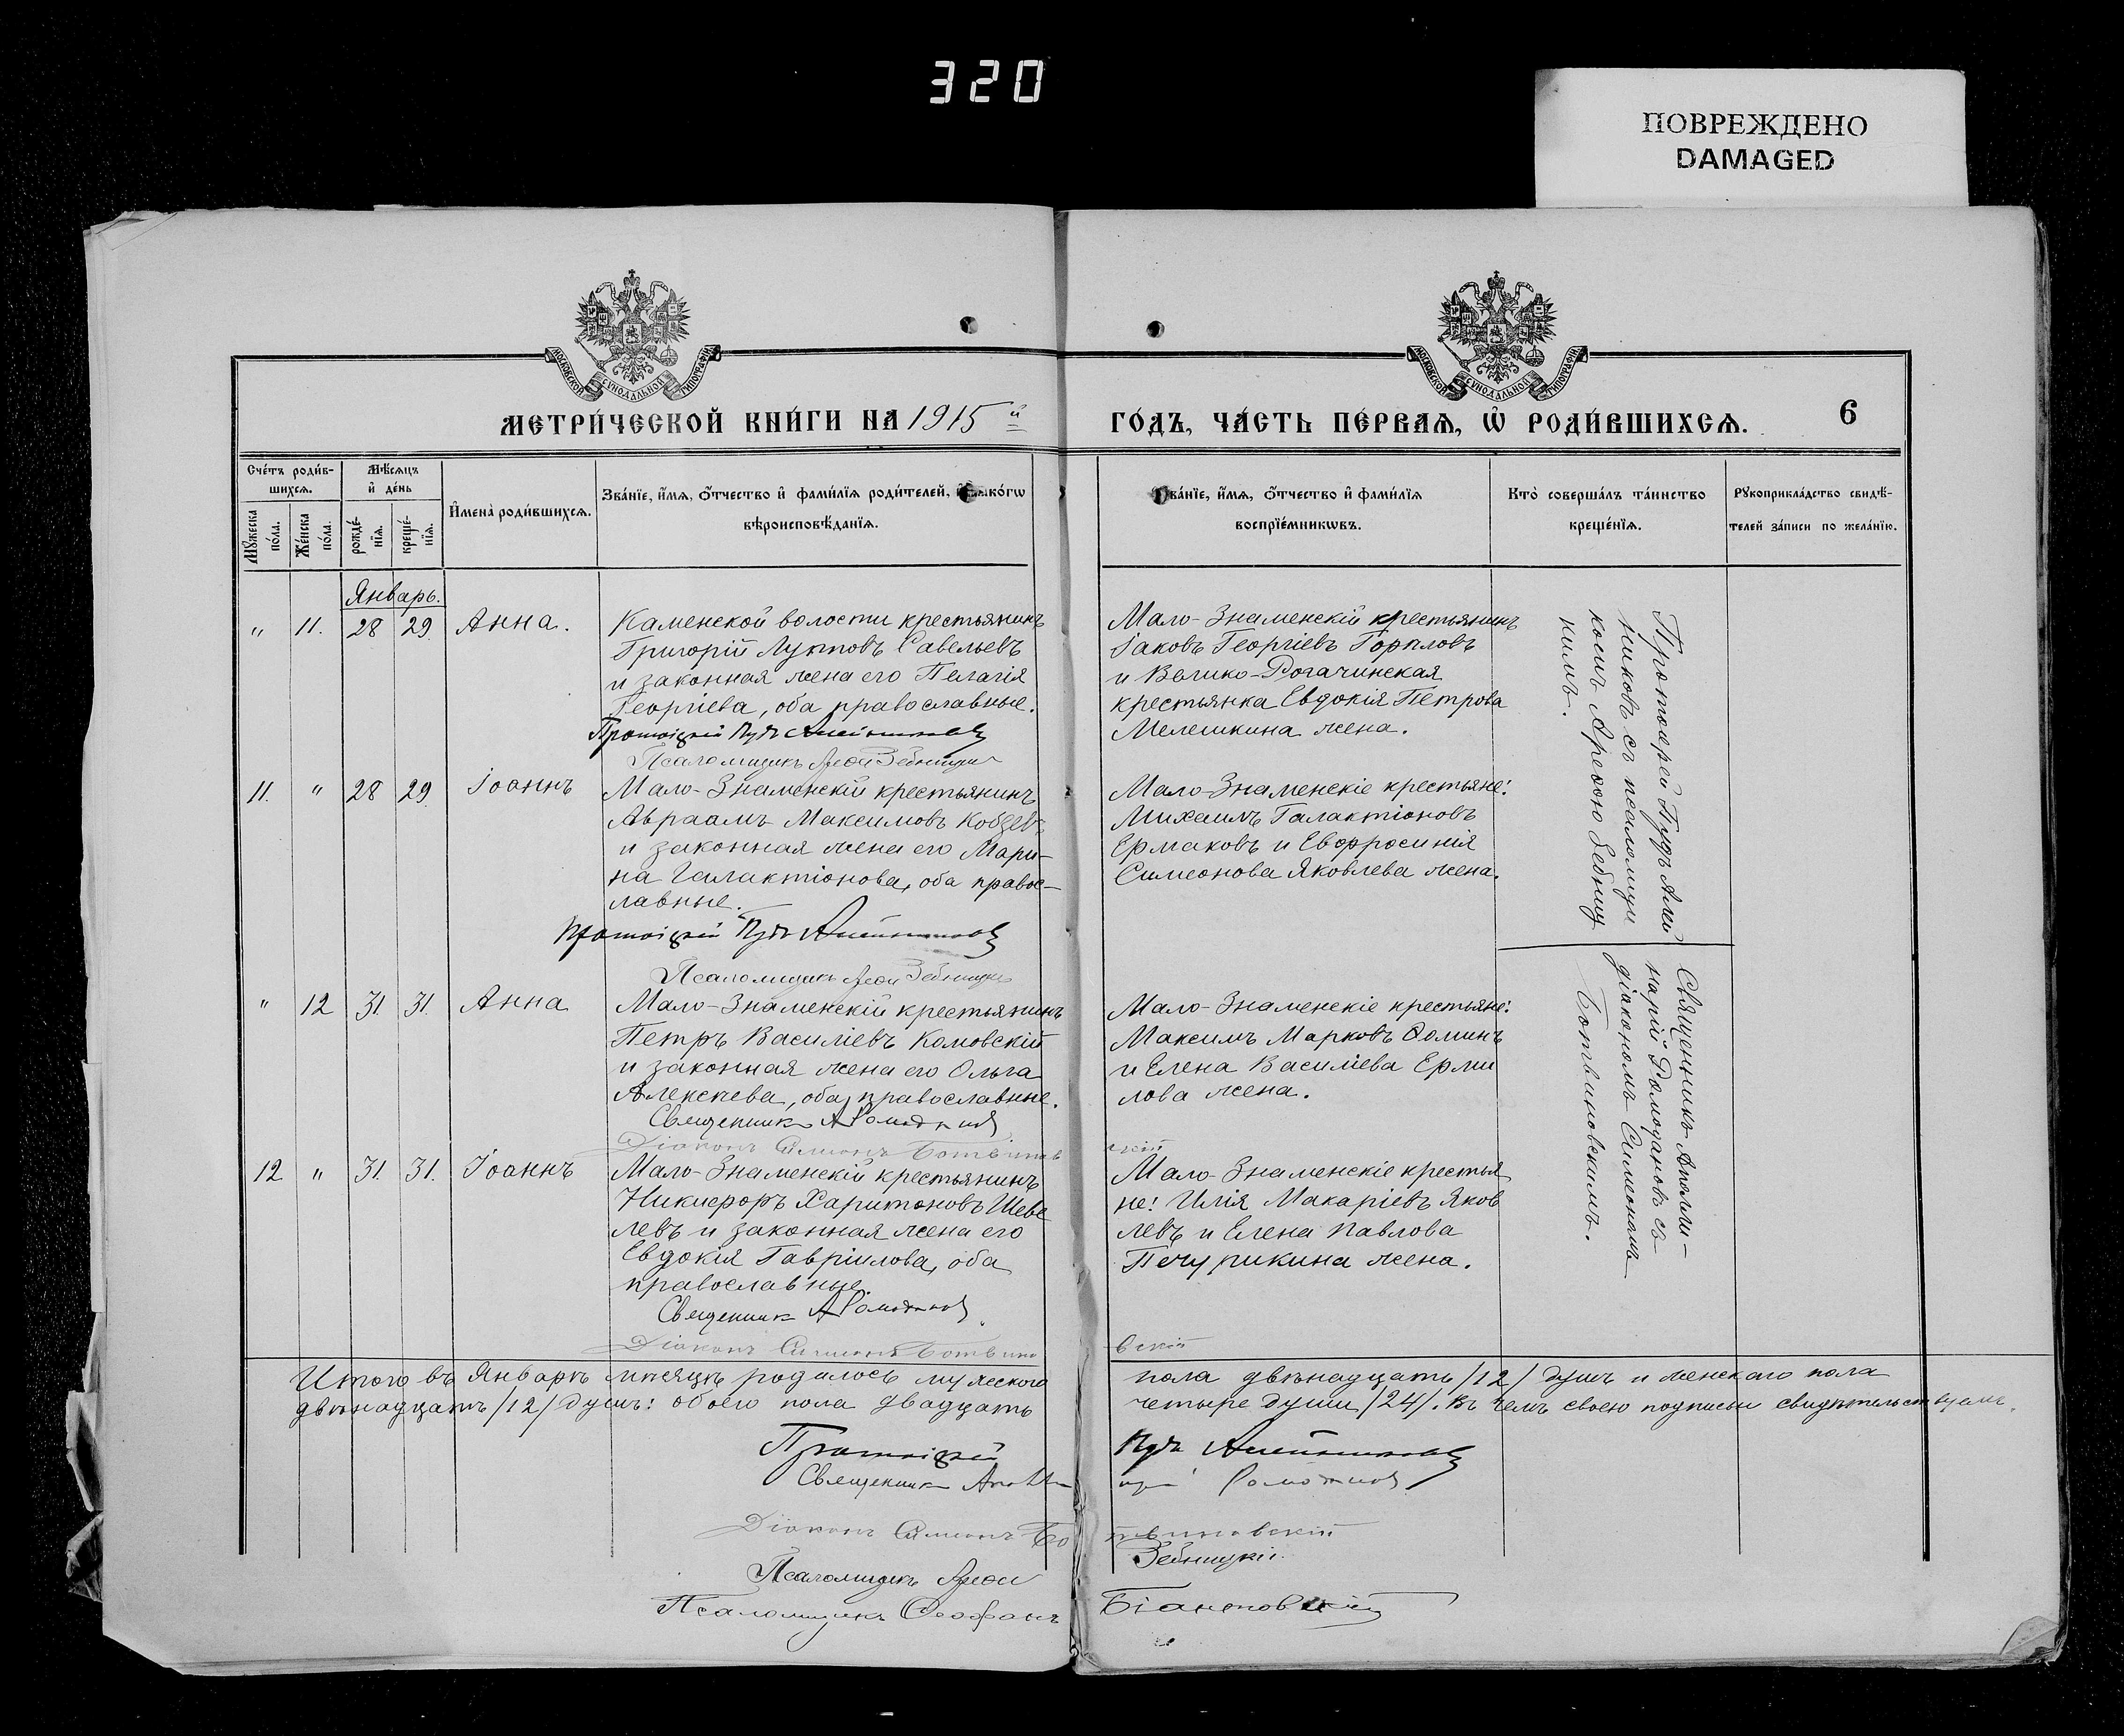 320
ПОВРЕЖДЕНО
DAMAGED
МОСКОВСКОЙ СѴНОДАЛЬНОЙ ТИПОГРАФІИ
МОСКОВСКОЙ СѴНОДАЛЬНОЙ ТИПОГРАФІИ
МЕТРИ́ЧЕСКОЙ КНИ́ГИ НА 1915 й
ГО́ДЪ, ЧА́СТЬ ПЕ́РВАЯ, Ѡ РОДИ́ВШИХСЯ.
6
Сче́тъ роди́вшихся.
Мѣ́сяцъ и де́нь
Му́жеска по́ла.
Же́нска по́ла.
рожде́нїя.
креще́нїя.
И҆мена̀ роди́вшихся.
Зва́нїе, и҆́мя, о҆́тчество и҆ фами́лїя роди́телей, и҆ како́гѡ
вѣроисповѣ́данїя.
Зва́нїе, и҆́мя, о҆́тчество и҆ фами́лїя
воспрїе́мникѡвъ.
Кто̀ соверша́лъ та́инство
креще́нїя.
Рꙋкоприкла́дство свидѣ́-
телей за́писи по жела́нїю.
Январь.
" 11. 28 29. Анна.
Каменской волости крестьянинъ
Григорій Луктовъ Савельевъ
и законная жена его Пелагія
Георгіева, оба православные.
Протоіерей Пудъ Алейниковъ
Псаломщикъ Арефа Зебницкій
Мало-Знаменскій крестьянинъ
Іаковъ Георгіевъ Гориловъ
и Велико-Рогачинская
крестьянка Евдокія Петрова
Мелешкина жена.
Протоіерей Пудъ Алей
никовъ съ псаломщи
комъ Арефою Зебниц
кимъ.
11. " 28 29. Іоаннъ
Мало-Знаменскій крестьянинъ
Авраамъ Максимовъ Кобзевъ
и законная жена его Мари-
на Галактіонова, оба правос-
лавные.
Протоіерей Пудъ Алейниковъ
Псаломщикъ Арефа Зебницкій
Мало-Знаменскіе крестьяне:
Михаилъ Галактіоновъ
Ермаковъ и Евфросинія
Симеонова Яковлева жена.
" 12 31. 31. Анна
Мало-Знаменскій крестьянинъ
Петръ Василіевъ Комовскій
и законная жена его Ольга
Алексѣева, оба православные.
Священникъ А Ромодановъ
Діаконъ Симеонъ Ботвиновскій
Мало-Знаменскіе крестьяне:
Максимъ Марковъ Фоминъ
и Елена Василіева Ерми
лова жена.
Священникъ Аполли-
нарій Ромодановъ съ
діакономъ Симеономъ
Ботвиновскимъ.
12 " 31. 31. Іоаннъ
Мало-Знаменскій крестьянинъ
Никифоръ Харитоновъ Шеве
левъ и законная жена его
Евдокія Гавріилова, оба
православные.
Священникъ А Ромодановъ
Діаконъ Симеонъ Ботвиновскій
Мало-Знаменскіе крестья
не: Илія Макаріевъ Яков
левъ и Елена Павлова
Печурикина жена.
Итого въ Январѣ мѣсяцѣ родилось мужескаго пола двѣнадцать /12/ душъ и женскаго пола
двѣнадцать /12/ душъ: обоего пола двадцать четыре души /24/. Въ чемъ своею подписью свидѣтельствуемъ.
Протоіерей Пудъ Алейниковъ
Священникъ Аполлинарій Ромодановъ
Діаконъ Симеонъ Ботвиновскій
Псаломщикъ Арефа Зебницкій
Псаломщикъ Феофанъ Біановскій